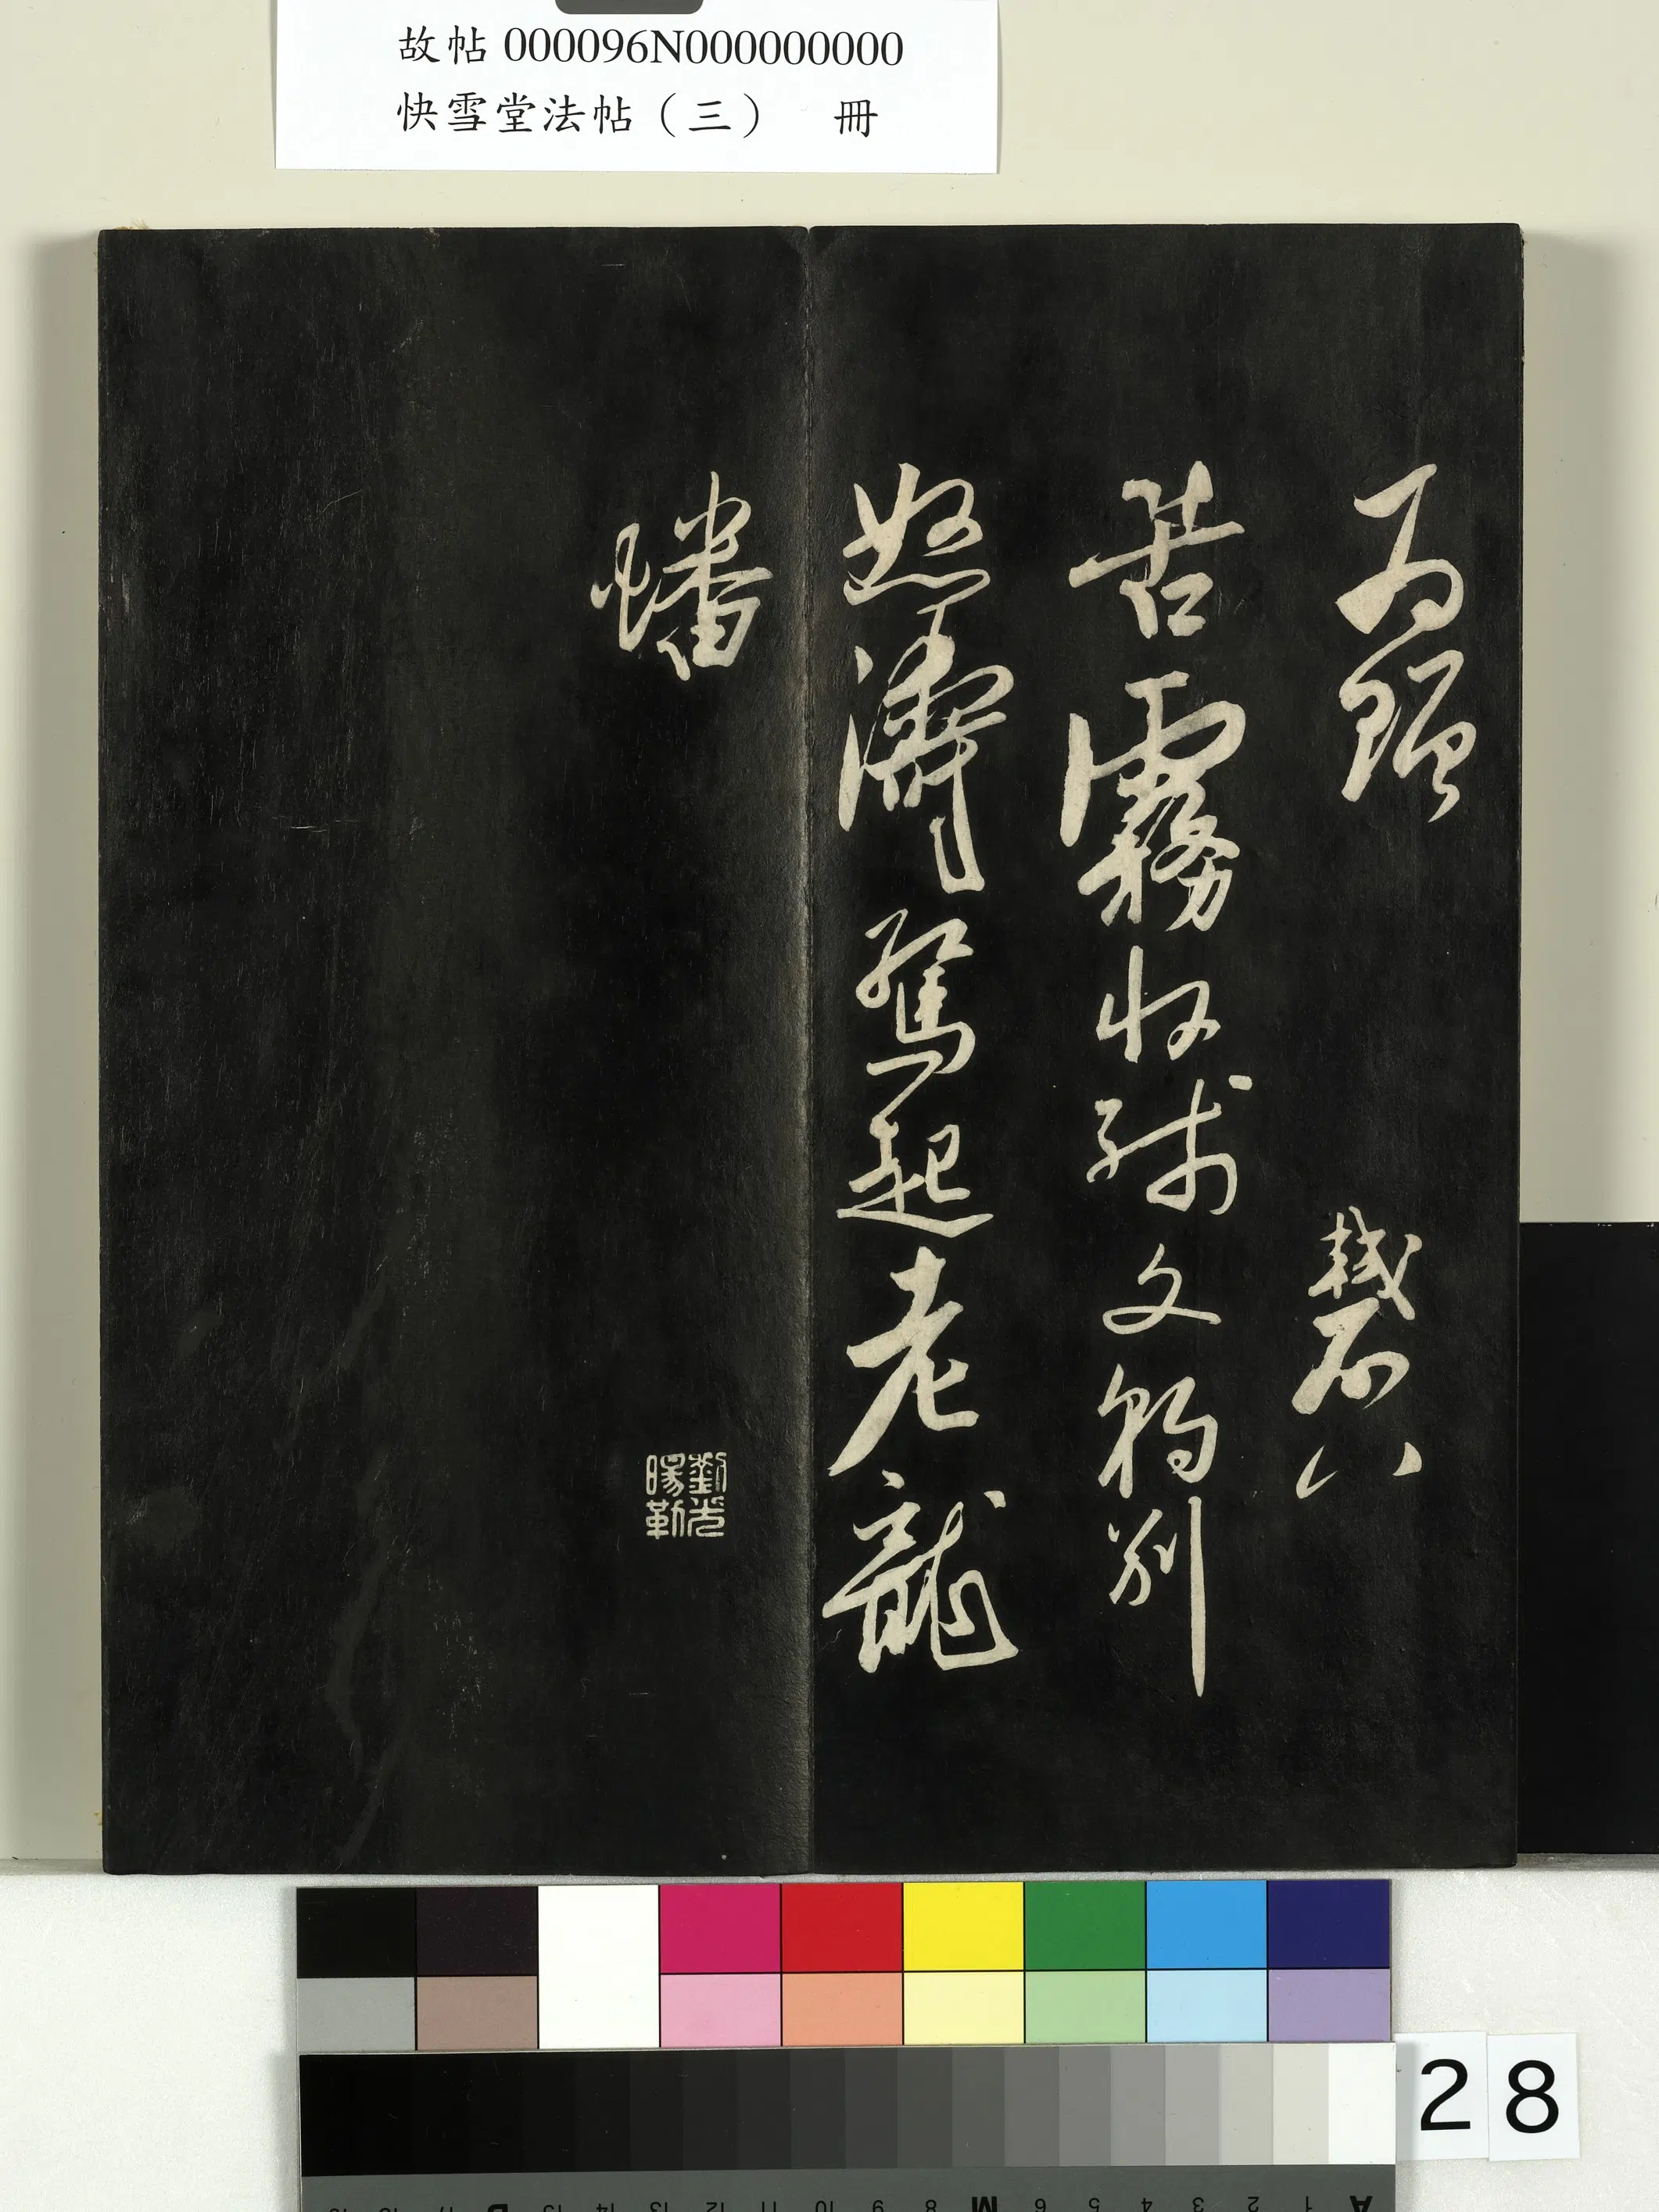 故帖 000096N000000000
快雪堂法帖（三） 冊
為贈
越石
苦霧收殘文豹別
怒濤驚起老龍
蟠
劉光
暘勒
28